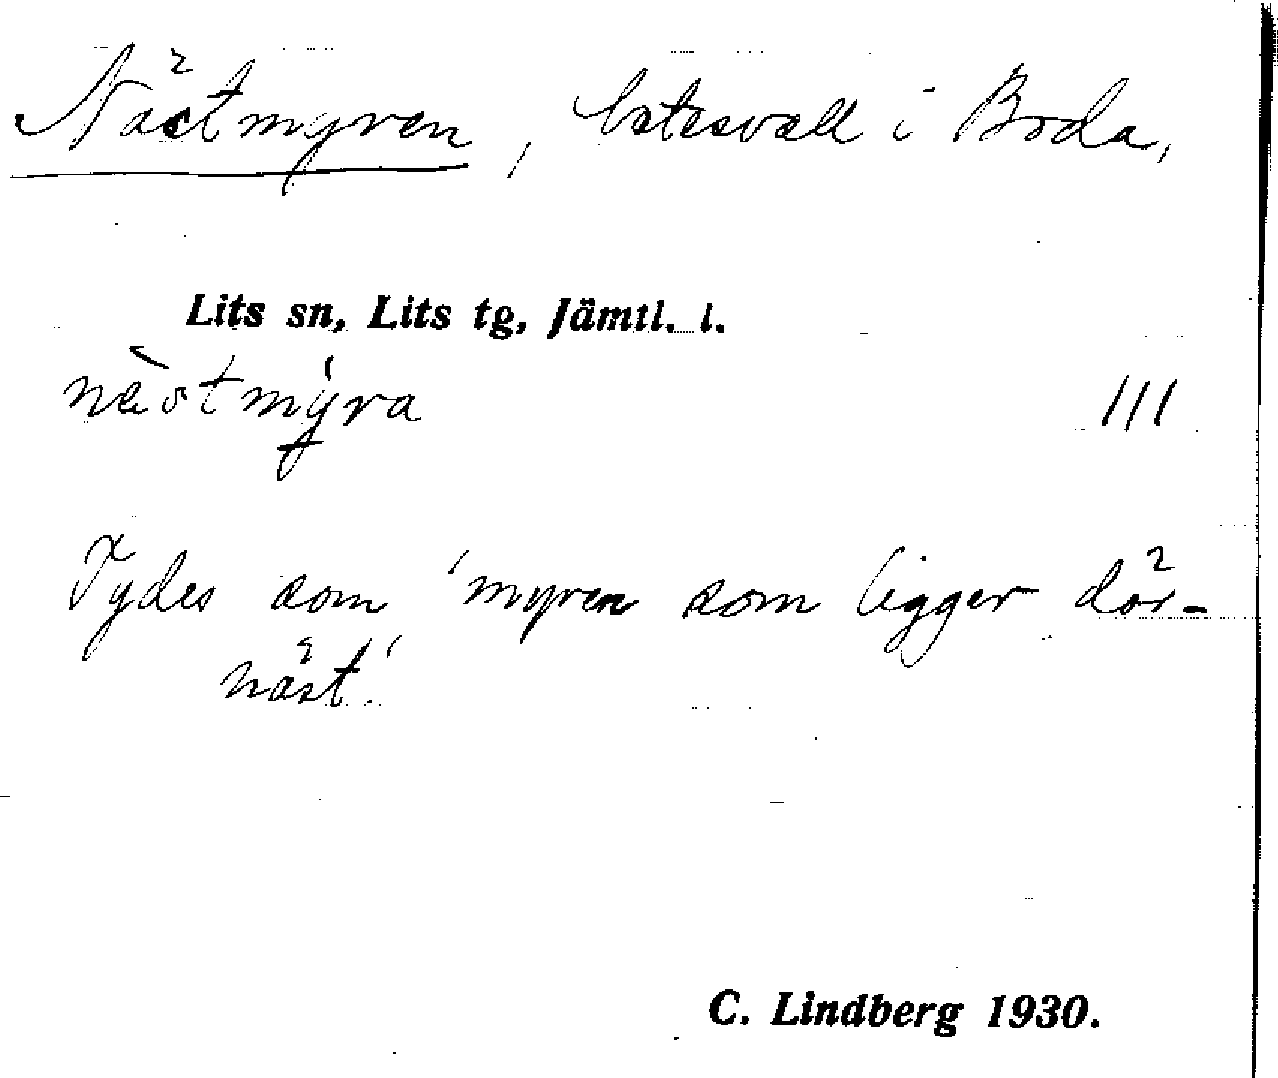 Nästmyren, betesvall i Boda,
Lits sn, Lits tg, Jämtl. l.
næ̀stmýra III
Tydes som 'myren som ligger där-
näst'.
C. Lindberg 1930.